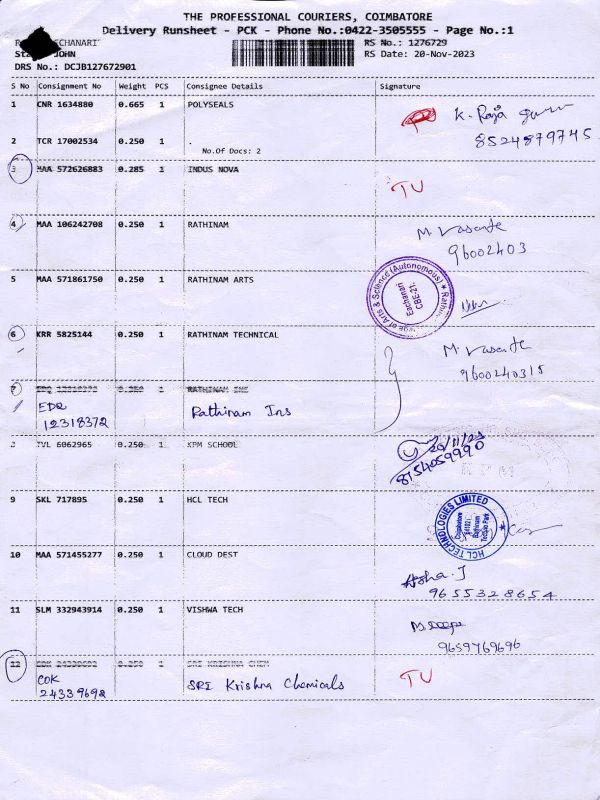 THE PROFESSIONAL COURIERS, COIMBATORE
Delivery Runsheet - PCK - Phone No.:0422-3505555 - Page No.:1
RS No.: 1276729
JOHN
RS Date: 20-Nov-2023
DRS No.: DCJB127672901
S No Consignment No Weight PCS Consignee Details Signature
1 CNR 1634880 0.665 1 POLYSEALS
K. Raja
8524879745
2 TCR 17002534 0.250 1 .
No.Of Docs: 2
3 MAA 572626883 0.285 1 INDUS NOVA
TU
4 MAA 106242708 0.250 1 RATHINAM
M. Vasante
96002403
5 MAA 571861750 0.250 1 RATHINAM ARTS
of Arts & Science (Autonomous) ★ Rathin
Eachanari
CBE-21.
6 KRR 5825144 0.250 1 RATHINAM TECHNICAL
M. Vasante
9600240315
7 EDQ 12318372 0.250 1 RATHINAM INS
EDQ
12318372
Rathinam Ins
TVL 6062965 0.250 1 KPM SCHOOL
20/11/23
8754059990
9 SKL 717895 0.250 1 HCL TECH
HCL TECHNOLOGIES LIMITED ★
Coimbatore
Rathinam
Techzone Park
10 MAA 571455277 0.250 1 CLOUD DEST
Asha. J
9655328654
11 SLM 332943914 0.250 1 VISHWA TECH
9659769696
12 COK 24339692 0.250 1 SRI KRISHNA CHEM
COK
24339692
SRI Krishna Chemicals
TU